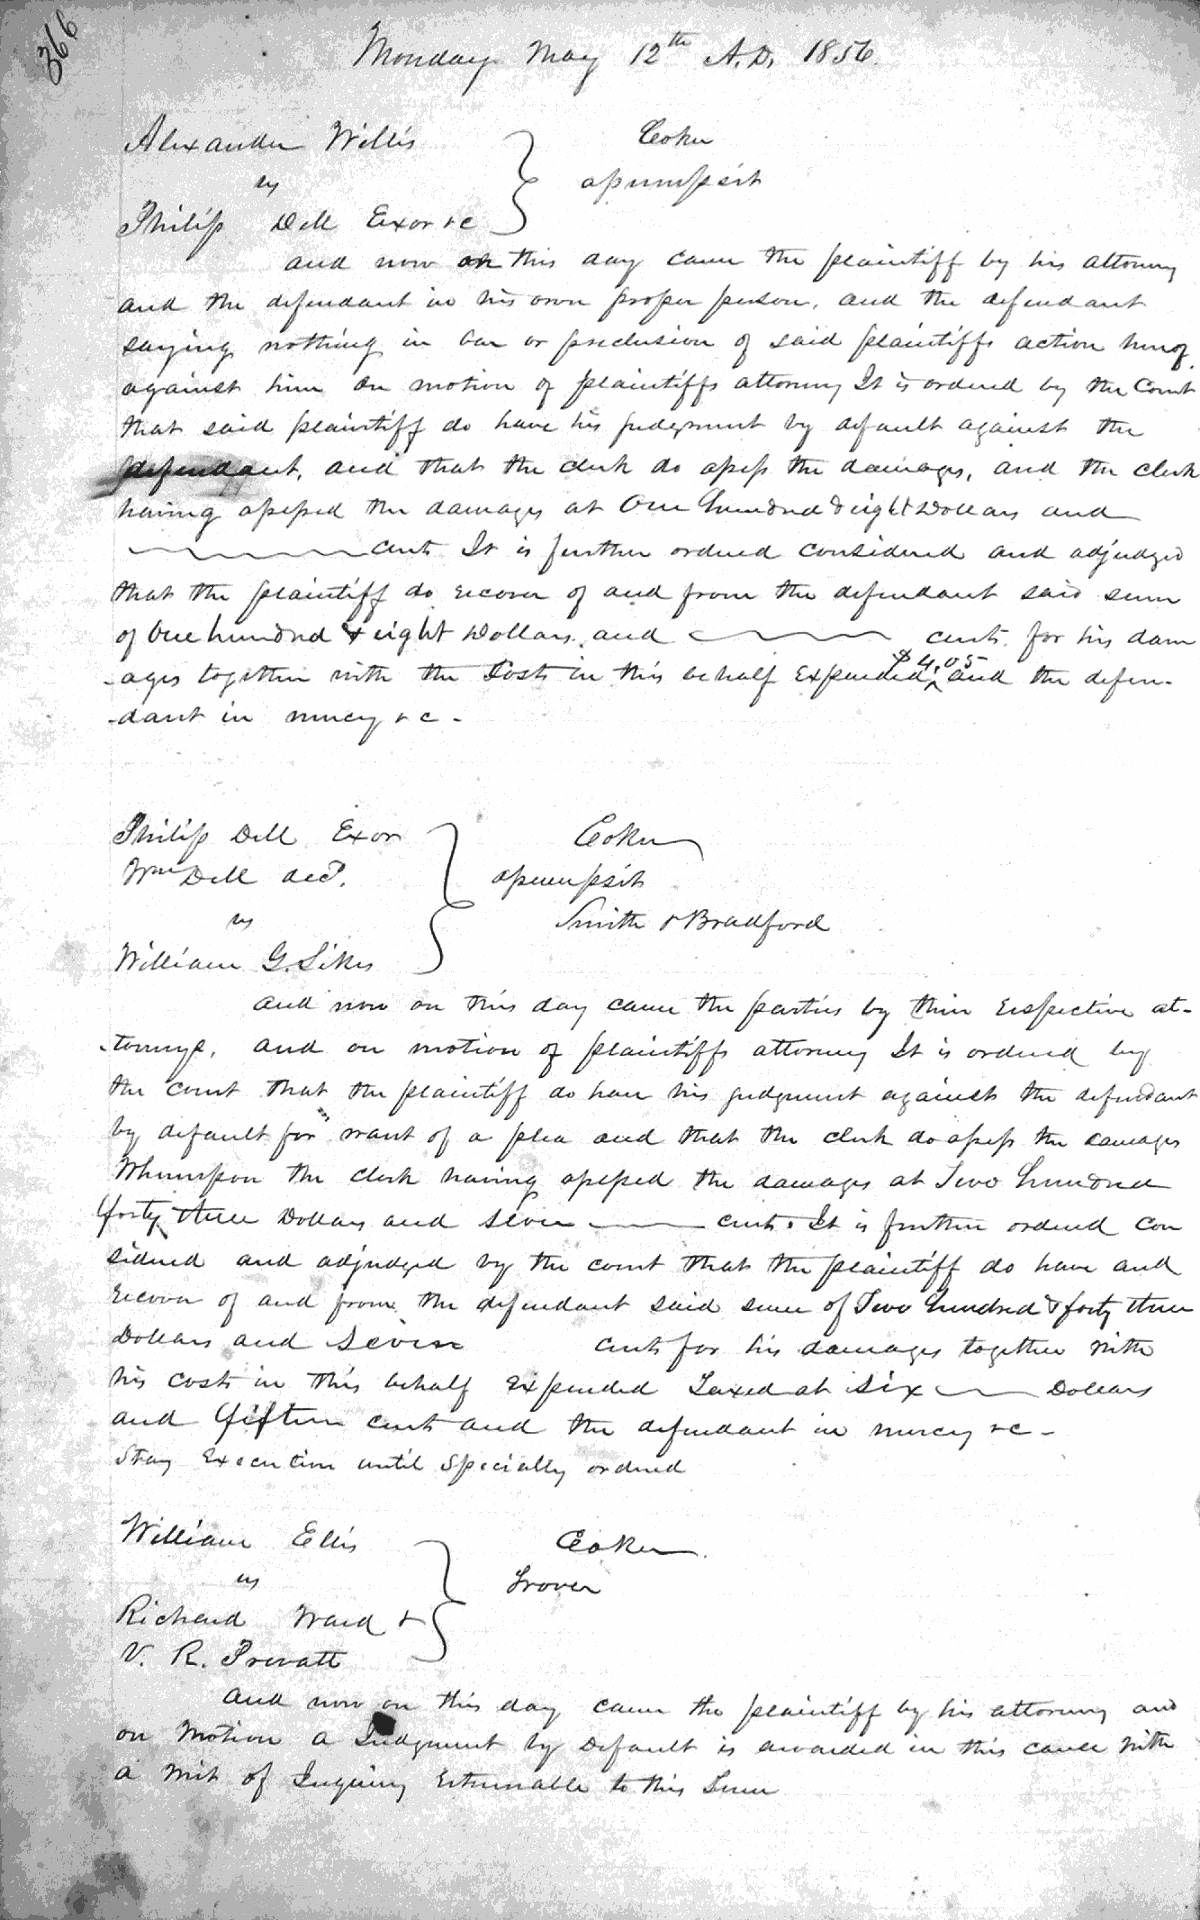 366
Monday May 12th A.D. 1856.
Alexander Willis
vs
Philip Dell Exor &c
Coker
assumpsit
and now on this day came the plaintiff by his attorney
and the defendant in his own proper person, and the defendant
saying nothing in bar or preclusion of said plaintiffs action hereof
against him on motion of plaintiffs attorney It is ordered by the Court
that said plaintiff do have his judgment by default against the
defendant, and that the clerk do assess the damages, and the clerk
having assessed the damages at One hundred & eight Dollars and
cents It is further ordered considered and adjudged
that the plaintiff do recover of and from the defendant said sum
of One hundred & eight Dollars and cents for his dam
-ages together with the Costs in this behalf Expended, $4.05 and the defen-
-dant in mercy &c -
Philip Dell Exor
Wm Dell decd.
vs
William G. Sikes
Coker
assumpsit
Smith & Bradford
and now on this day came the parties by their respective at-
-torneys, and on motion of plaintiffs attorney It is ordered by
the court that the plaintiff do have his judgment against the defendant
by default for want of a plea and that the clerk do assess the damages
Whereupon the clerk having assessed the damages at Two hundred
forty three Dollars and seven cents. It is further ordered con
sidered and adjudged by the court that the plaintiff do have and
recover of and from the defendant said sum of Two hundred & forty three
Dollars and Seven cents for his damages together with
his costs in this behalf expended Taxed at Six Dollars
and fifteen cents and the defendant in mercy &c -
Stay Execution until Specially ordered
William Ellis
vs
Richard Ward &
V. R. Prevatt
Coker
Trover
And now on this day came the plaintiff by his attorney and
on Motion a Judgment by Default is awarded in this cause with
a writ of Inquiry returnable to this Term